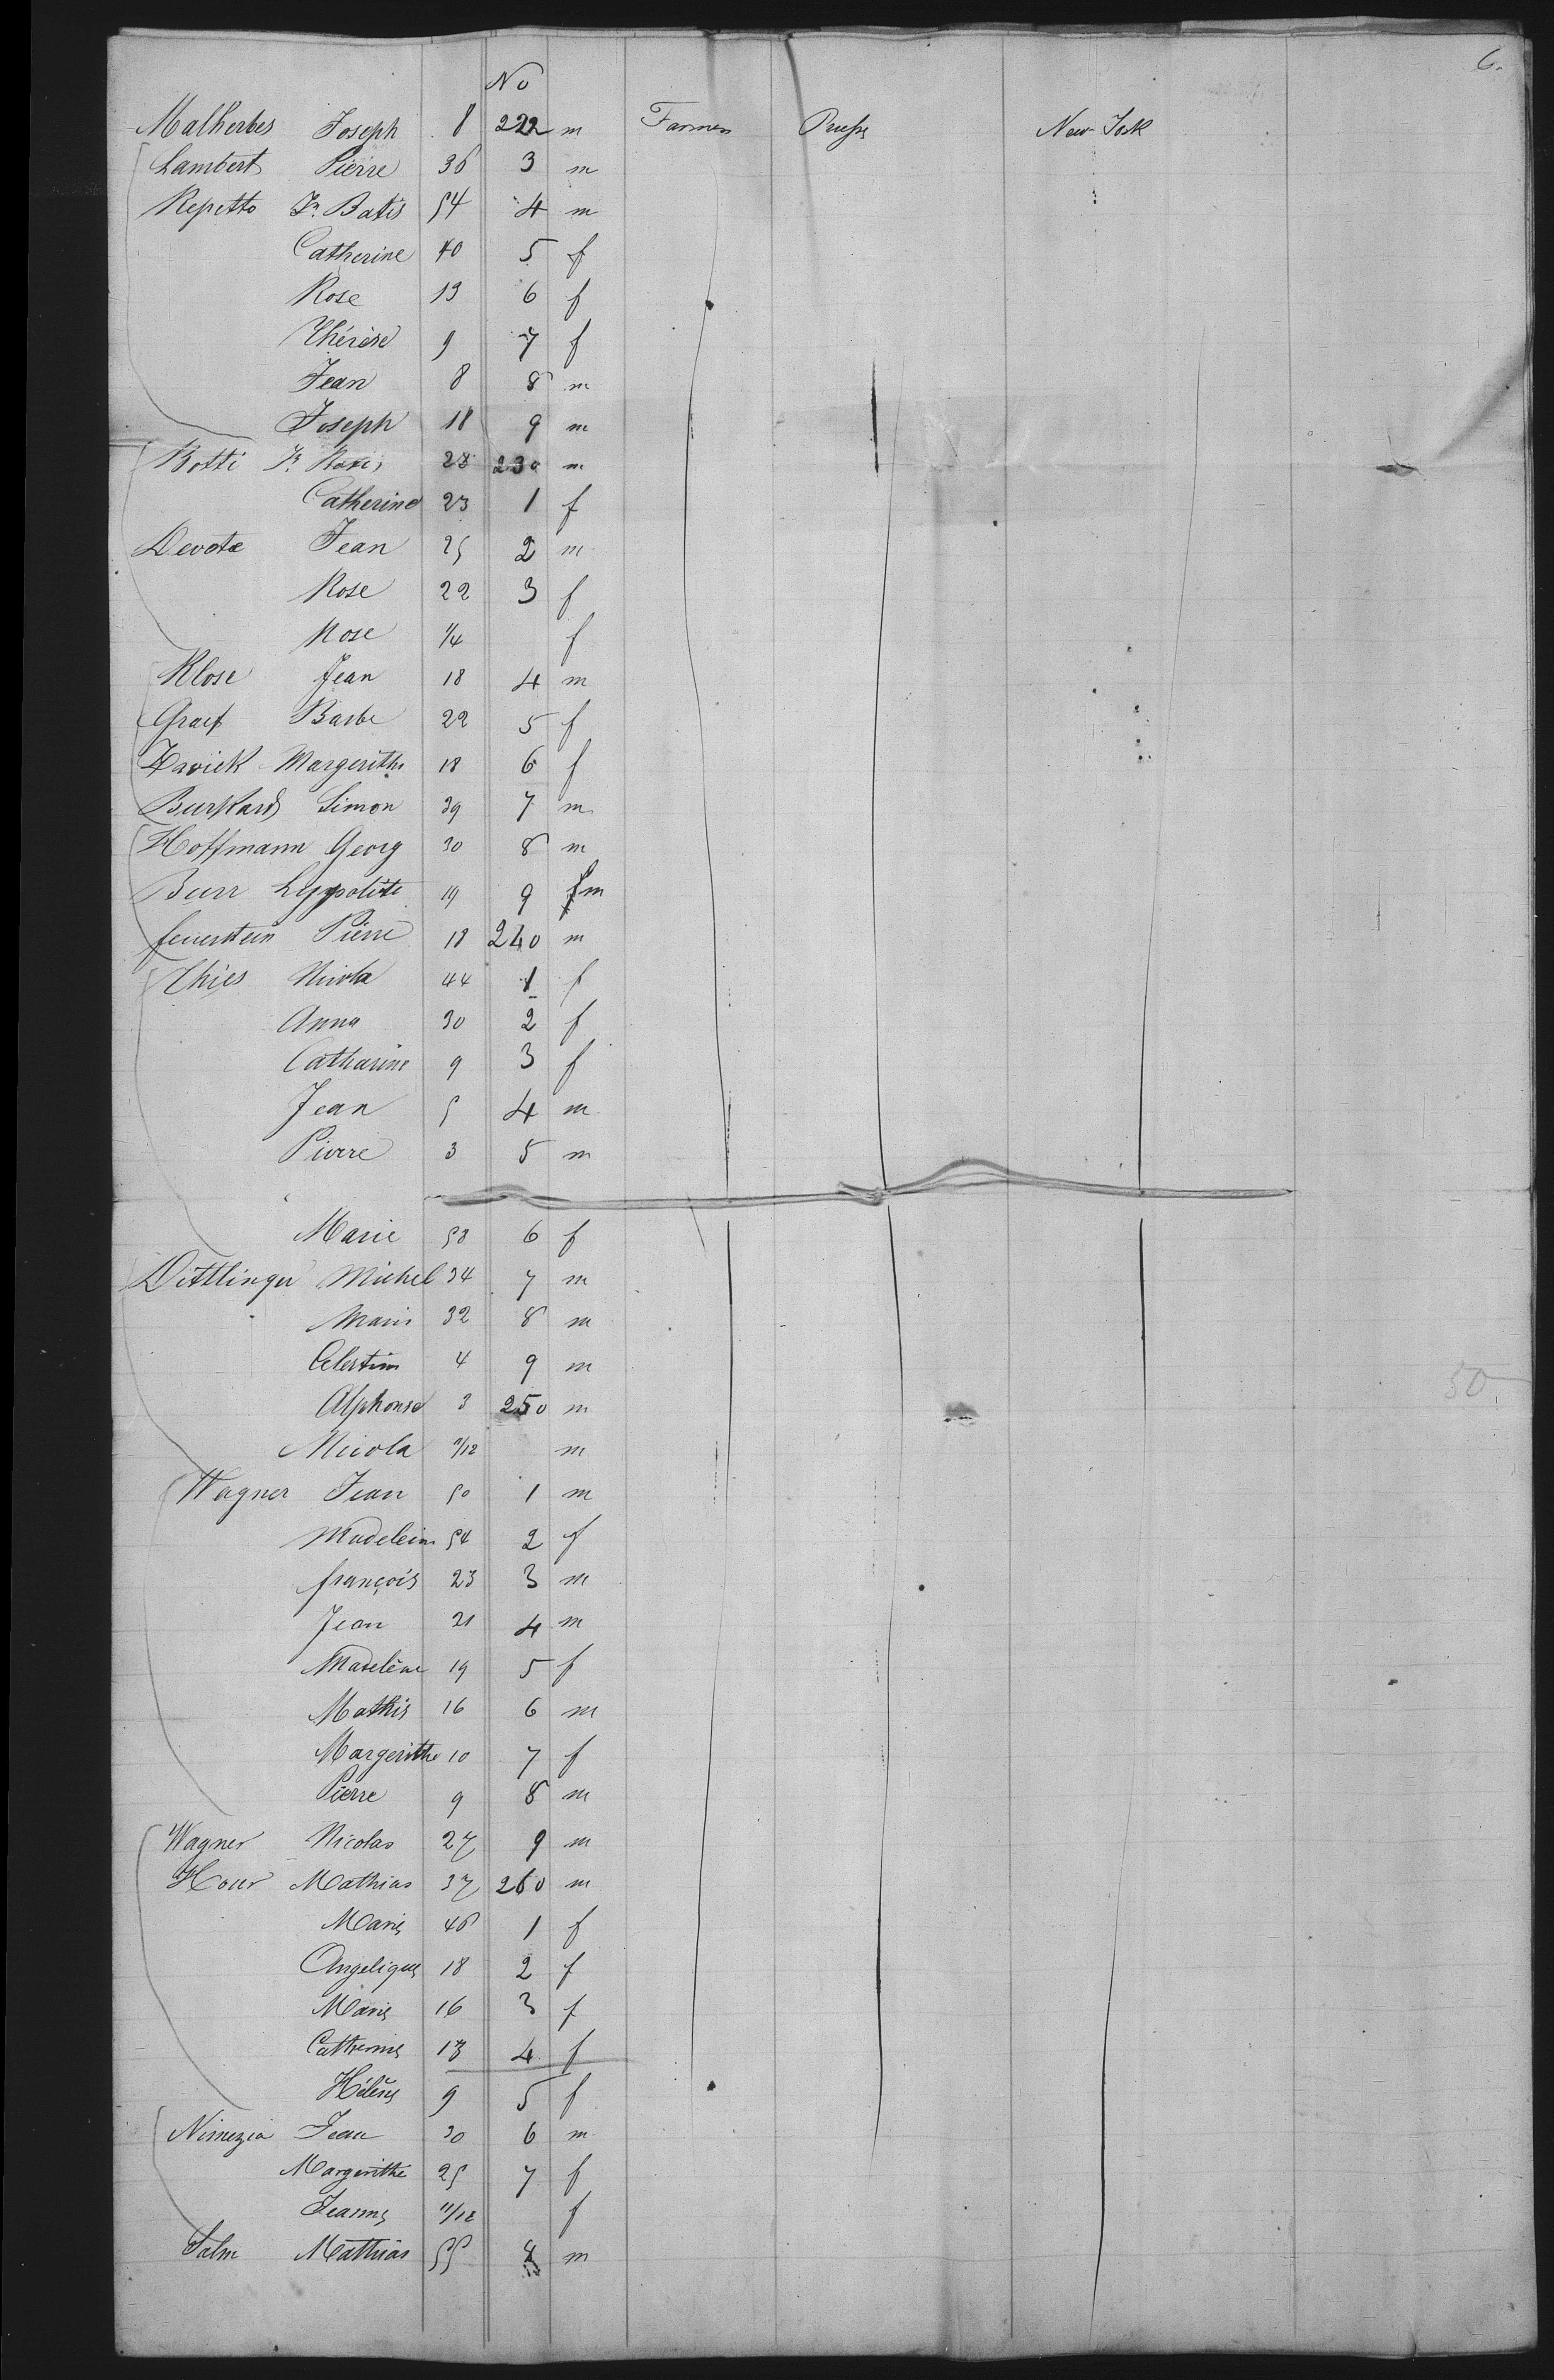 6.
No
Malherbes Joseph 8 222 m Farmer Prusse New-York
Lambert Pierre 36 3 m
Repetto Jn Batis 54 4 m
Catherine 40 5 f
Rose 13 6 f
Thérèse 9 7 f
Jean 8 8 m
Joseph 18 9 m
Botti Jn 28 230 m
Catherine 23 1 f
Devote Jean 25 2 m
Rose 22 3 f
Rose 1/4 f
Klose Jean 18 4 m
Graef Barbe 22 5 f
Zavick Margerithe 18 6 f
Burkard Simon 39 7 m
Hoffmann Georg 30 8 m
Burr Hyppolite 19 9 m
feuerstein Pierre 18 240 m
Thies Nicola 44 1 f
Anna 30 2 f
Catharine 9 3 f
Jean 5 4 m
Pierre 3 5 m
Marie 58 6 f
Dittlinger Michel 34 7 m
Marie 32 8 m
Celestine 4 9 m
Alphonse 3 250 m
Nicola 11/12 m
Wagner Jean 50 1 m
Madelein 54 2 f
françois 23 3 m
Jean 21 4 m
Madelène 19 5 f
Mathis 16 6 m
Margerithe 10 7 f
Pierre 9 8 m
Wagner Nicolas 27 9 m
Hour Mathias 37 260 m
Marie 46 1 f
Angelique 18 2 f
Marie 16 3 f
Catherine 13 4 f
Hélène 9 5 f
Nimezia Jean 30 6 m
Margerithe 25 7 f
Jeanne 11/12 f
Salm Mathias 55 8 m
50